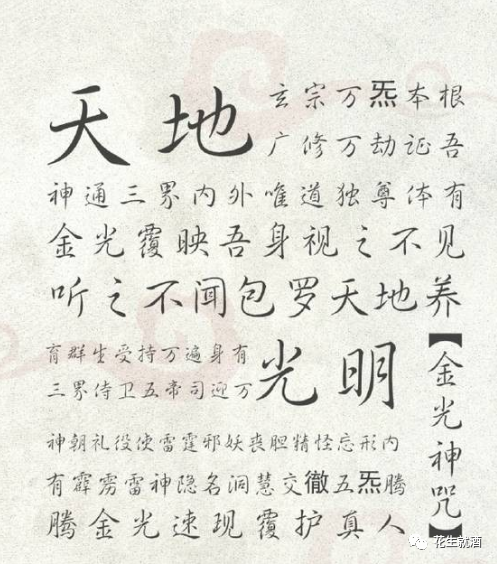 天地
玄宗万炁本根
广修万劫证吾
神通三界内外唯道独尊体有
金光覆映吾身视之不见
听之不闻包罗天地养
育群生受持万遍身有
光明
三界侍卫五帝司迎万
神朝礼役使雷霆邪妖丧胆精怪忘形内
有霹雳雷神隐名洞慧交徹五炁腾
腾金光速现覆护真人
【金光神咒】
花生就酒